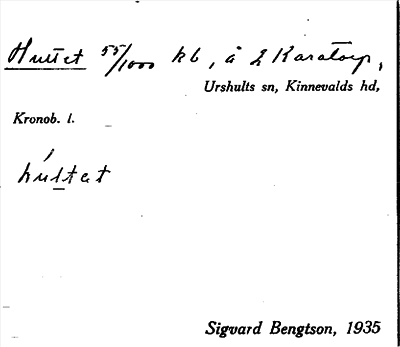 Hultet 55/1000 kb, å 2 Karatorp,
Urshults sn, Kinnevalds hd,
Kronob. l.
húltat
Sigvard Bengtson, 1935